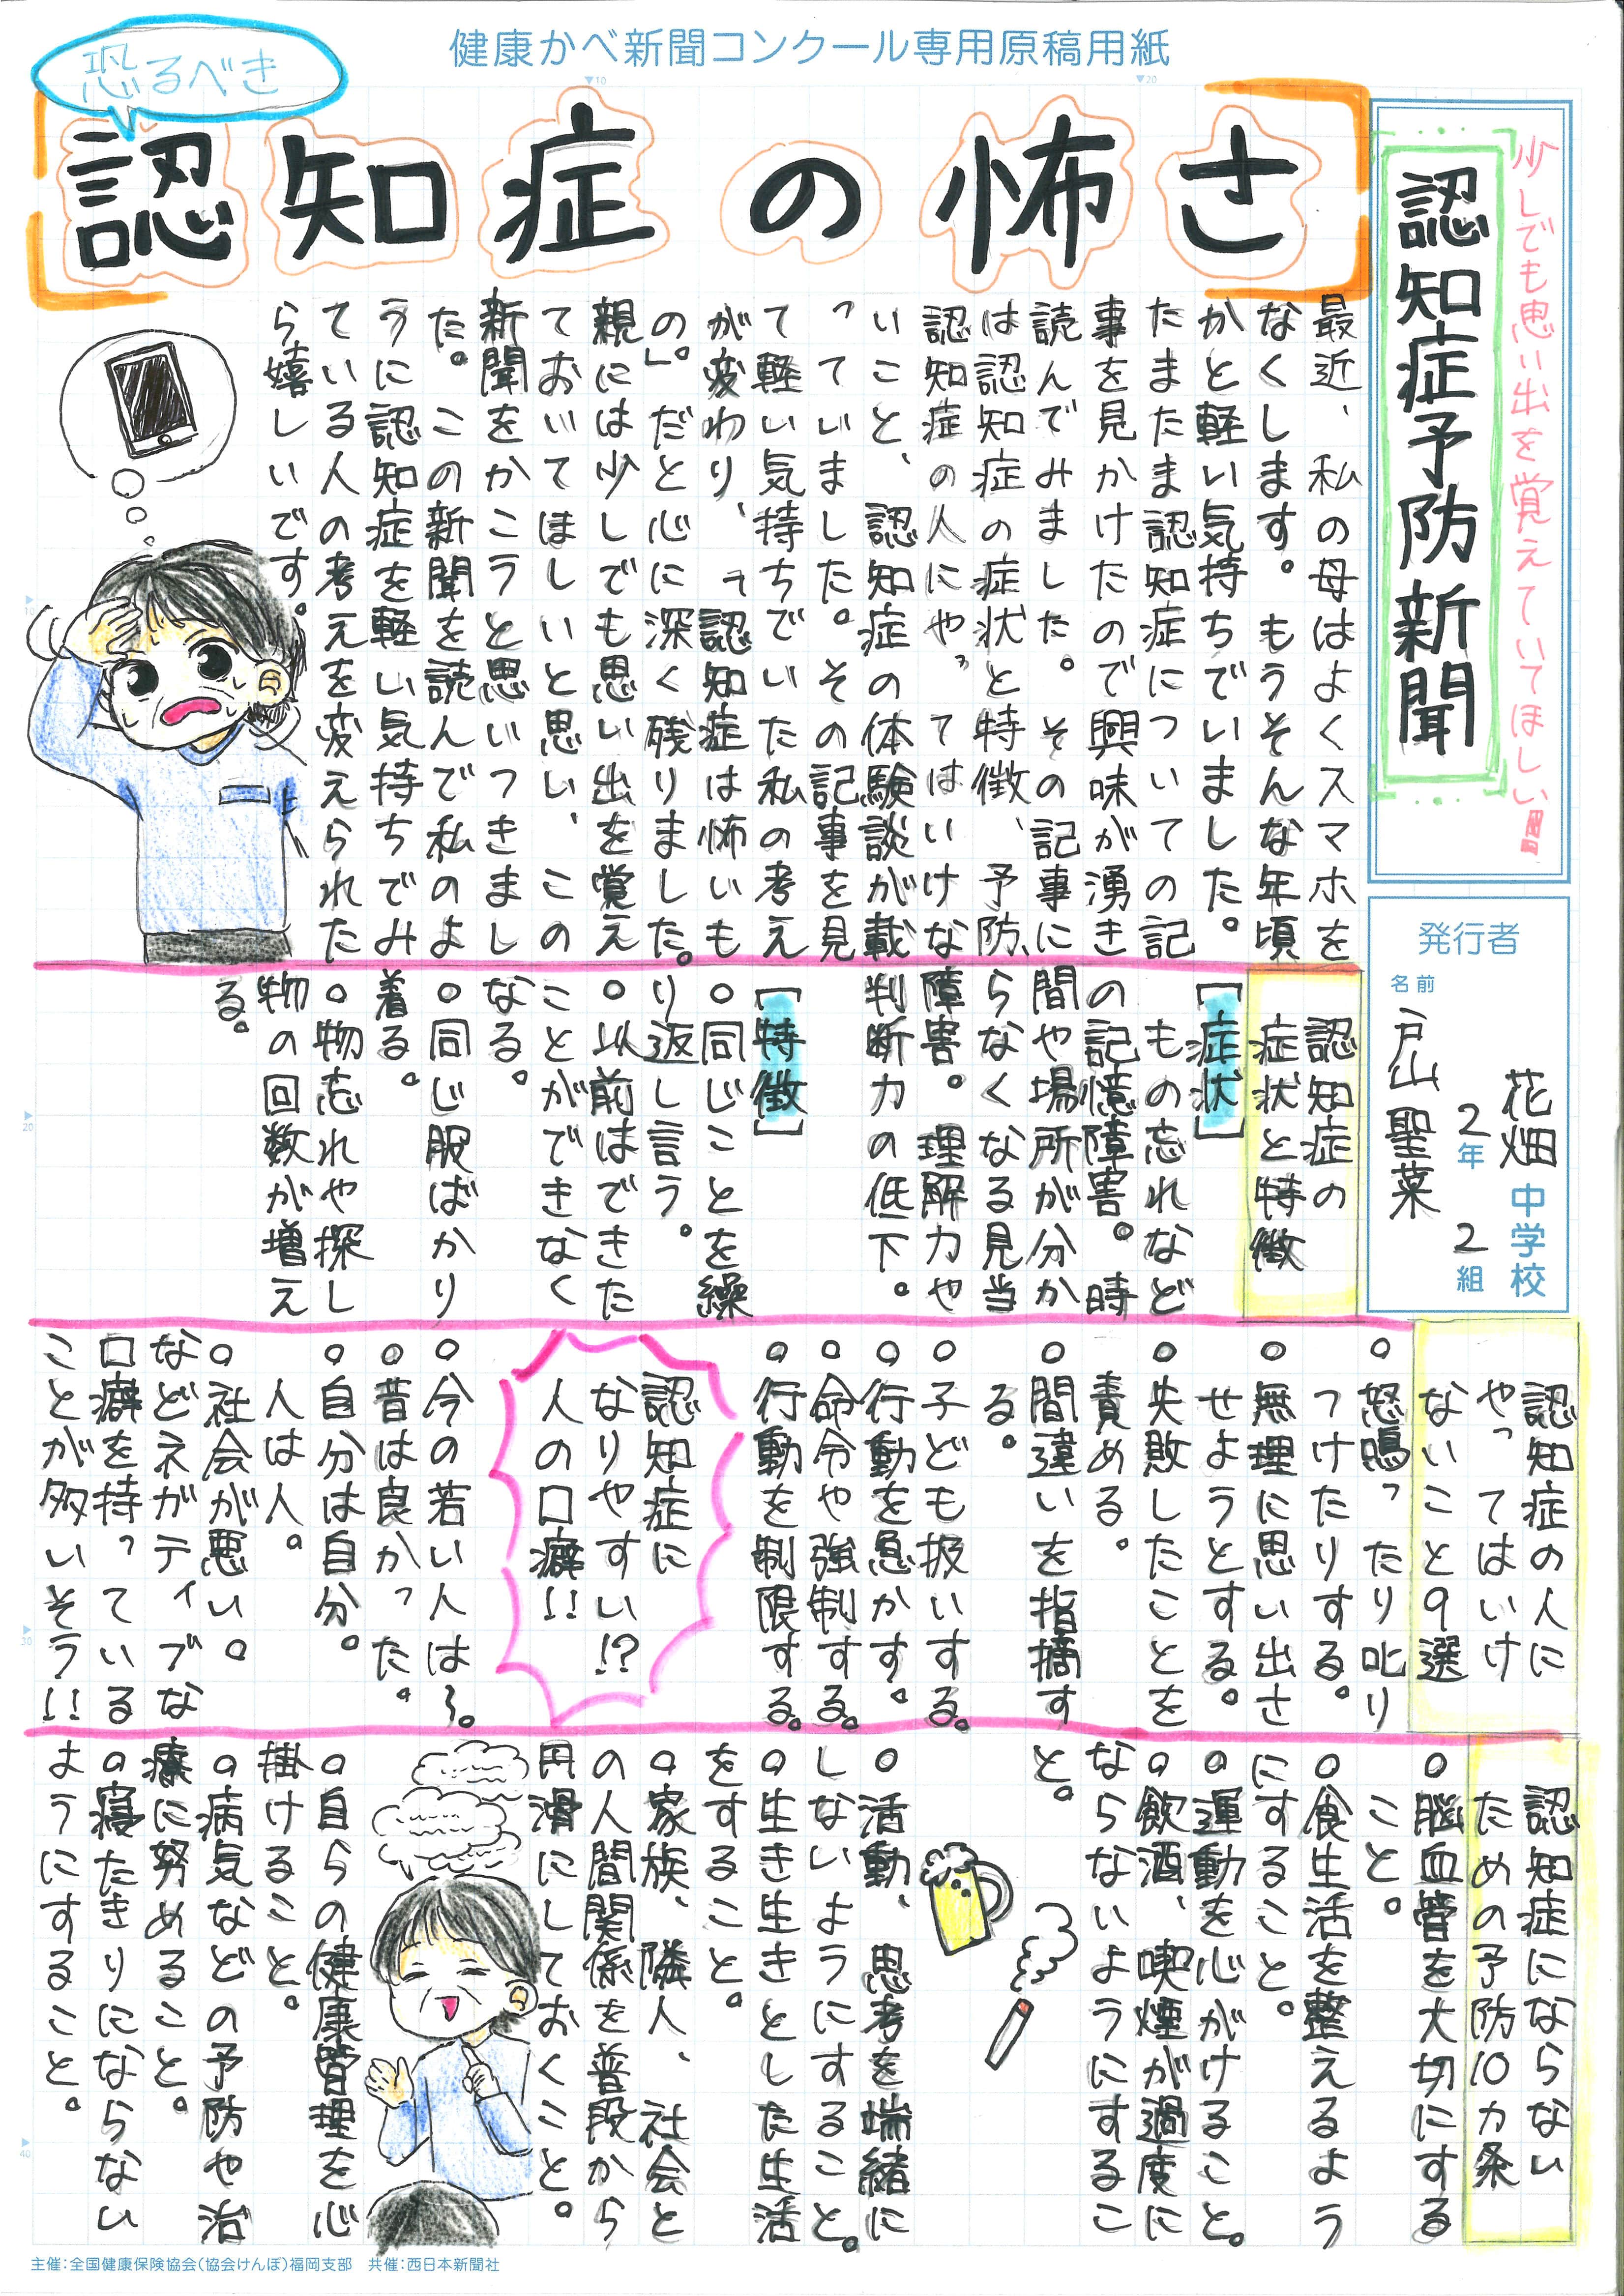 健康かべ新聞コンクール専用原稿用紙
少しでも思い出を覚えていてほしい!!
認知症予防新聞
発行者
花畑中学校
2年 2組
名前
戸山聖菜
恐るべき
認知症の怖さ
最近、私の母はよくスマホを
なくします。もうそんな年頃
かと軽い気持ちでいました。
たまたま認知症についての記
事を見かけたので興味が湧き
読んでみました。その記事に
は認知症の症状と特徴、予防、
認知症の人にやってはいけな
いこと、認知症の体験談が載
っていました。その記事を見
て軽い気持ちでいた私の考え
が変わり、「認知症は怖いも
の」。だと心に深く残りました。
親には少しでも思い出を覚え
ておいてほしいと思い、この
新聞をかこうと思いつきまし
た。この新聞を読んで私のよ
うに認知症を軽い気持ちでみ
ている人の考えを変えられた
ら嬉しいです。
認知症の
症状と特徴
[症状]
もの忘れなど
の記憶障害。時
間や場所が分か
らなくなる見当
障害。理解力や
判断力の低下。
[特徴]
○同じことを繰
り返し言う。
○以前はできた
ことができなく
なる。
○同じ服ばかり
着る。
○物忘れや探し
物の回数が増え
る。
認知症の人に
やってはいけ
ないこと9選
○怒鳴ったり叱り
つけたりする。
○無理に思い出さ
せようとする。
○失敗したことを
責める。
○間違いを指摘す
る。
○子ども扱いする。
○行動を急かす。
○命令や強制する。
○行動を制限する。
認知症に
なりやすい!?
人の口癖!!
○今の若い人は〜。
○昔は良かった。
○自分は自分。
人は人。
○社会が悪い。
などネガティブな
口癖を持っている
ことが多いそう!!
認知症にならない
ための予防10カ条
○脳血管を大切にする
こと。
○食生活を整えるよう
にすること。
○運動を心がけること。
○飲酒、喫煙が過度に
ならないようにするこ
と。
○活動、思考を端緒に
しないようにすること。
○生き生きとした生活
をすること。
○家族、隣人、社会と
の人間関係を普段から
円滑にしておくこと。
○自らの健康管理を心
掛けること。
○病気などの予防や治
療に努めること。
○寝たきりにならない
ようにすること。
主催:全国健康保険協会(協会けんぽ)福岡支部 共催:西日本新聞社